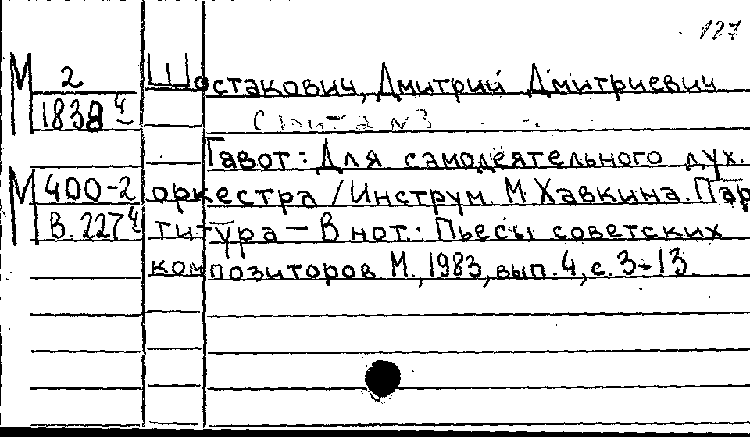 127
М 2 Шостакович, Дмитрий Дмитриевич
1838 ч Сюита №3
Гавот: Для самодеятельного дух.
М 400-2 оркестра / Инструм. М. Хавкина. Пар
В. 227 ч титура — В нот.: Пьесы советских
композиторов М., 1983, вып. 4, с. 3-13